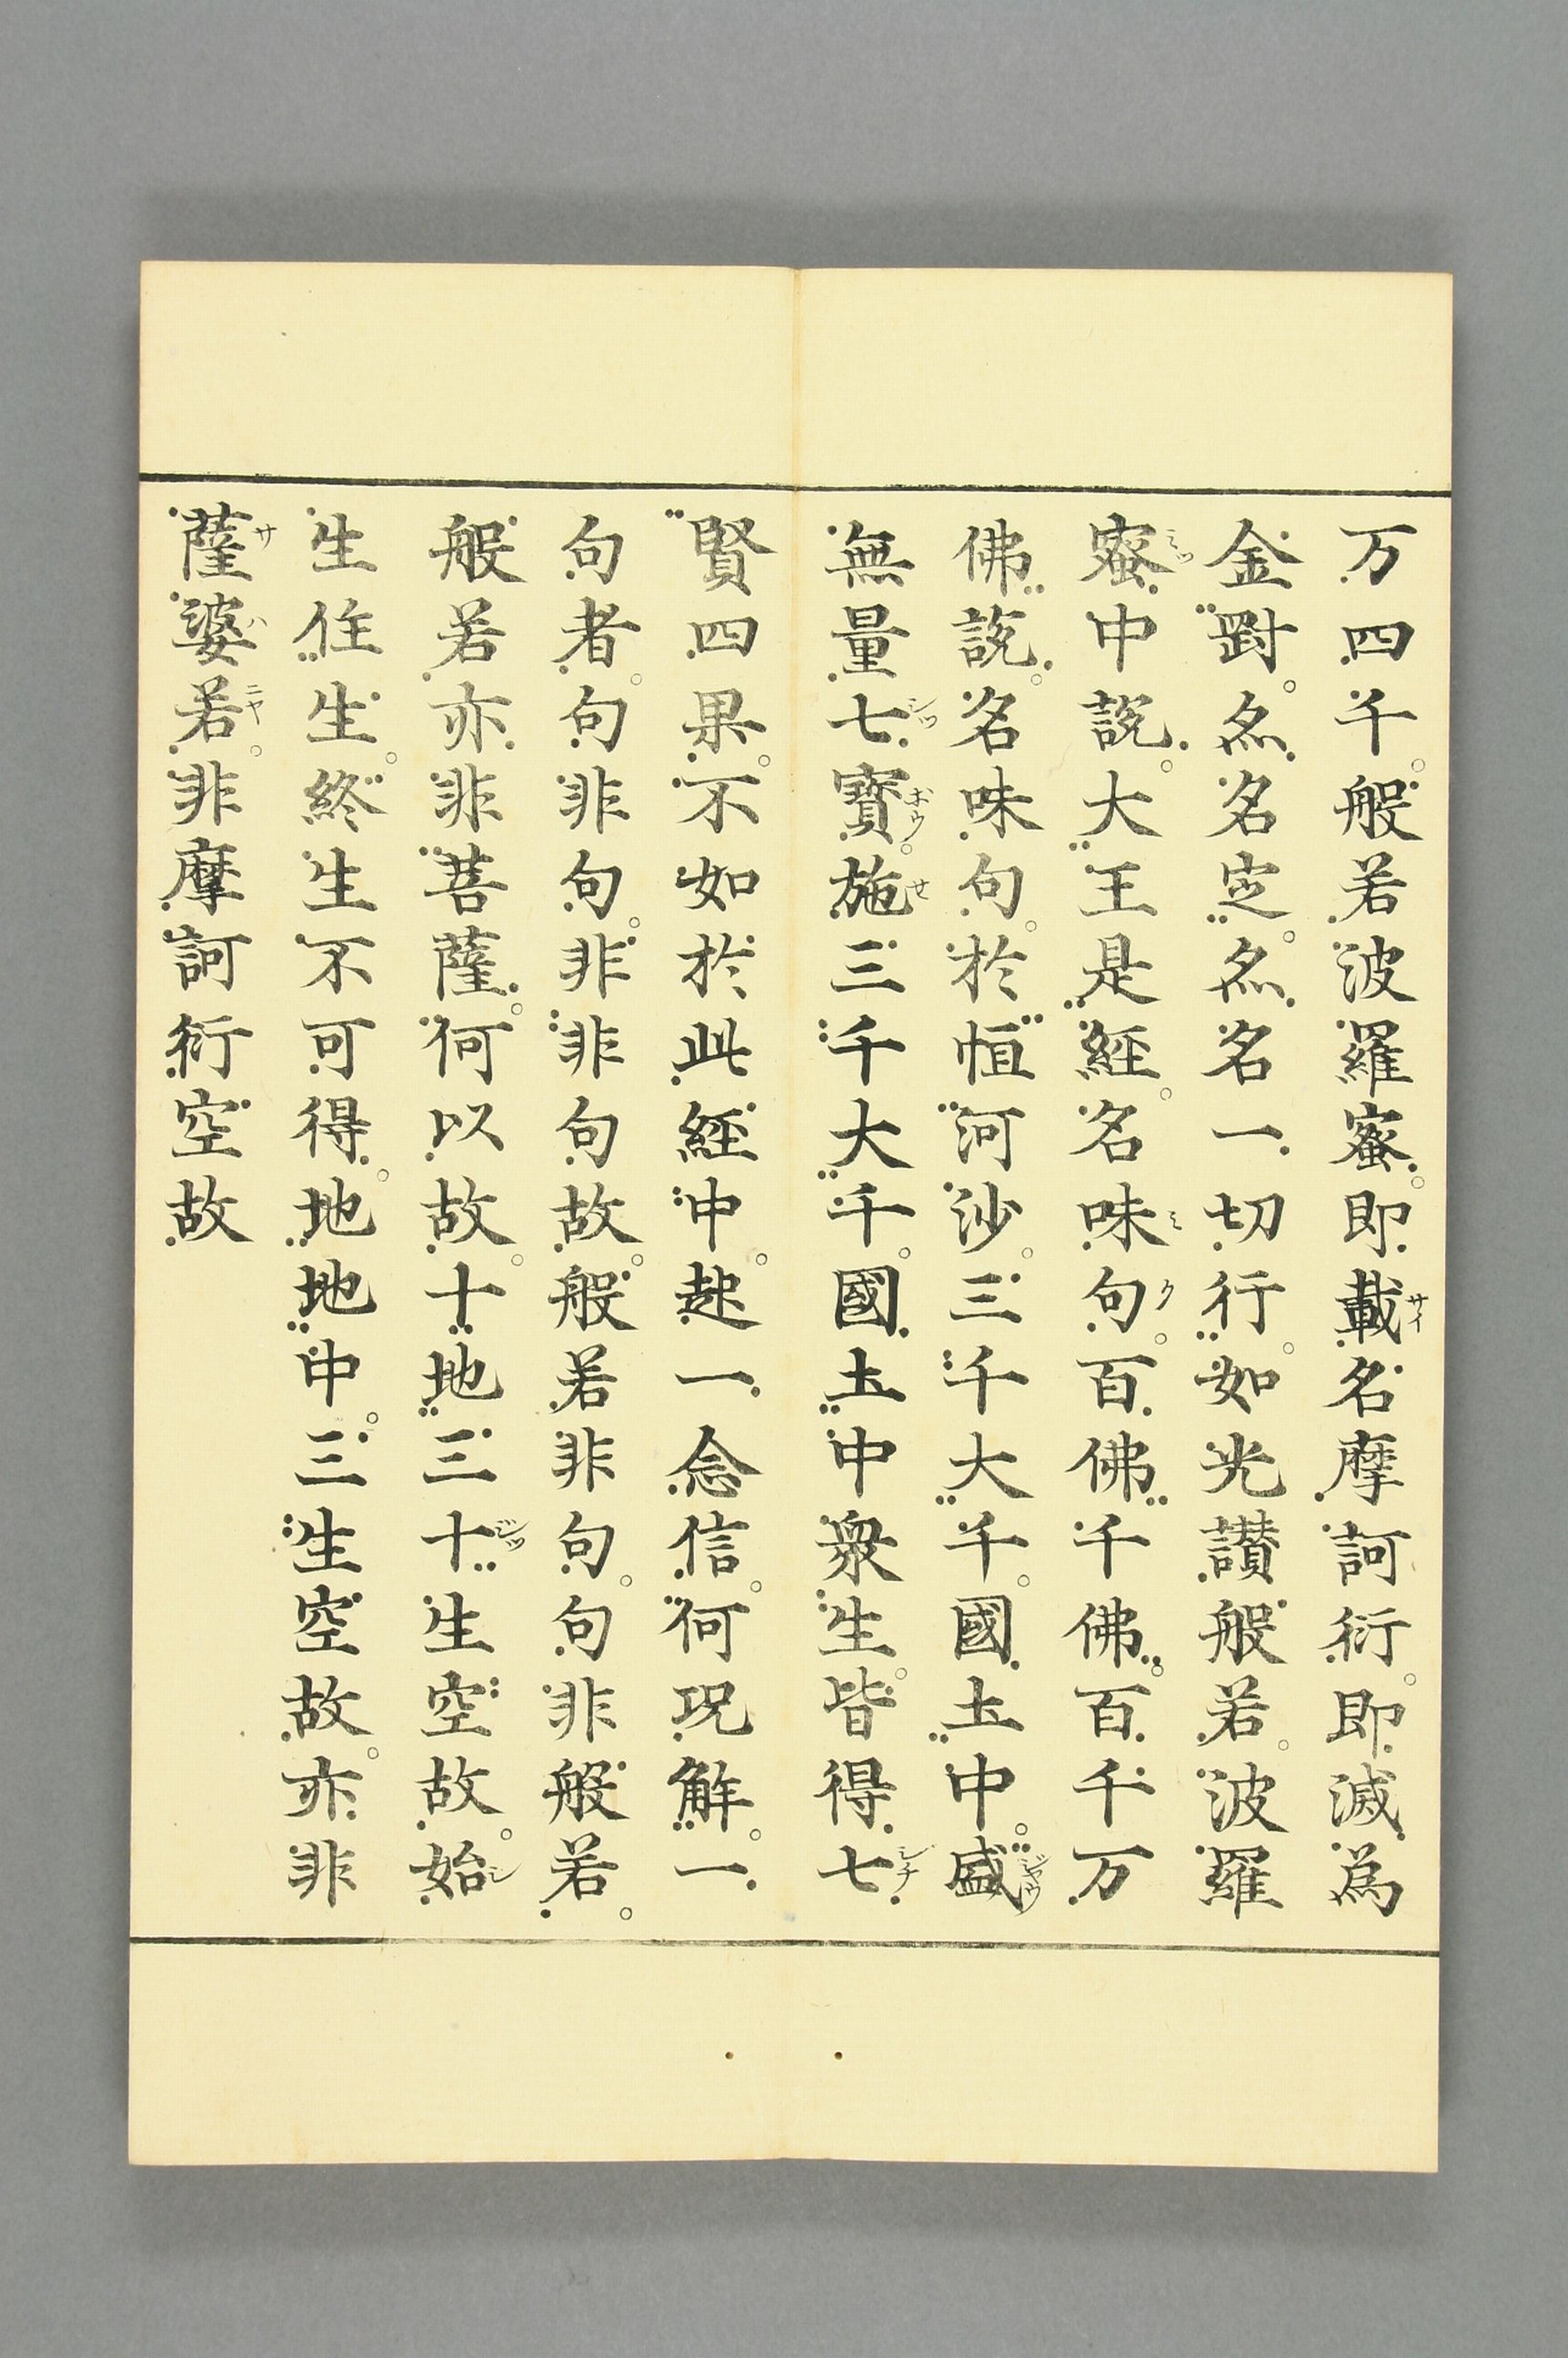 万四千。般若波羅蜜。即載名摩訶衍。即滅為
金剛。名名定。名名一切行。如光讃般若。波羅
蜜中說。大王是經。名味句。百佛千佛。百千万
佛說。名味句。於恒河沙。三千大千。國土中。盛
無量七寶。施三千大千。國土中衆生。皆得七
賢四果。不如於此經中。起一念信。何況解。一
句者。句非句。非非句故。般若非句。句非般若。
般若亦非菩薩。何以故。十地三十生空故。始
生住生。終生不可得。地地中。三生空故。亦非
薩婆若。非摩訶衍空故